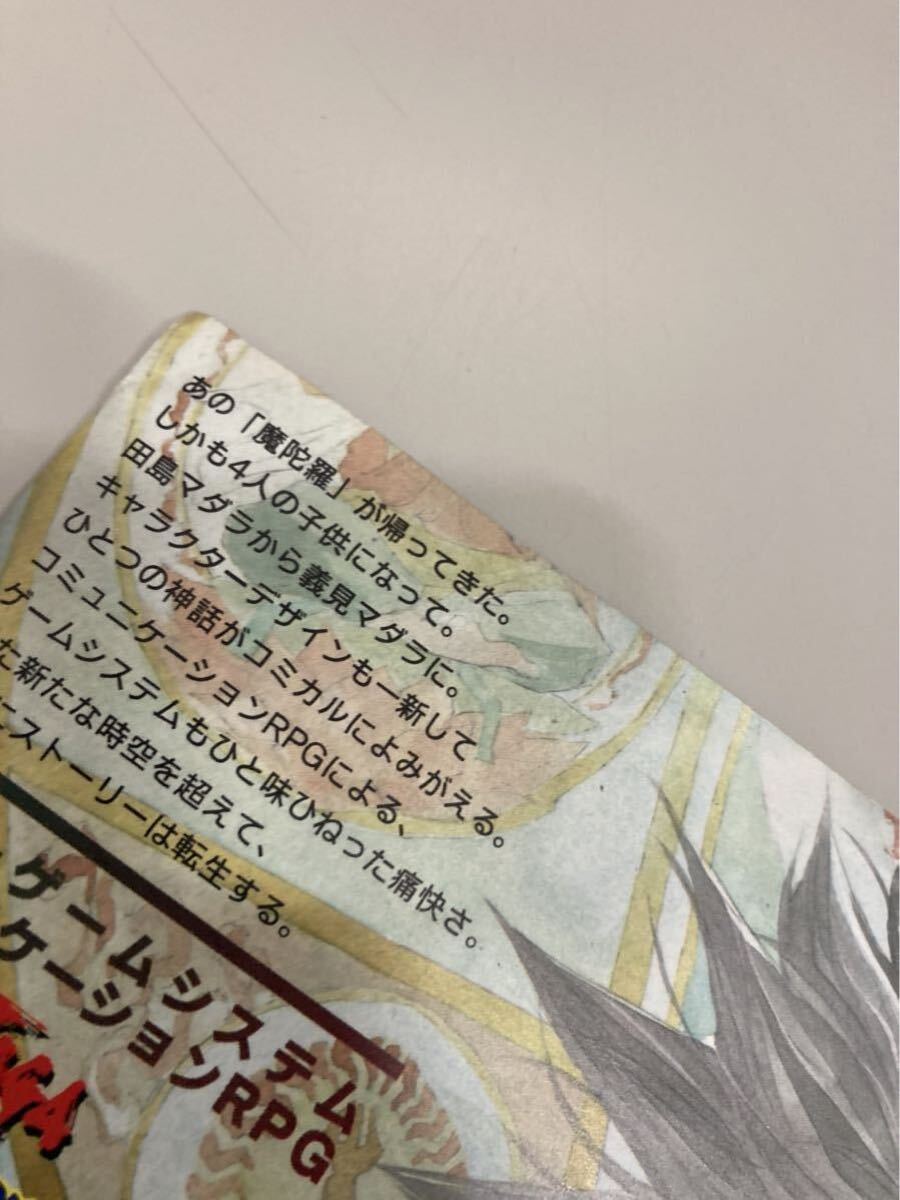 あの「魔陀羅」が帰ってきた。
しかも4人の子供になって。
田島マダラから義見マダラに。
キャラクターデザインも一新して
ひとつの神話がコミカルによみがえる。
コミュニケーションRPGによる、
ゲームシステムもひと味ひねった痛快さ。
た新たな時空を超えて、
ストーリーは転生する。
ゲームシステム
ケーションRPG